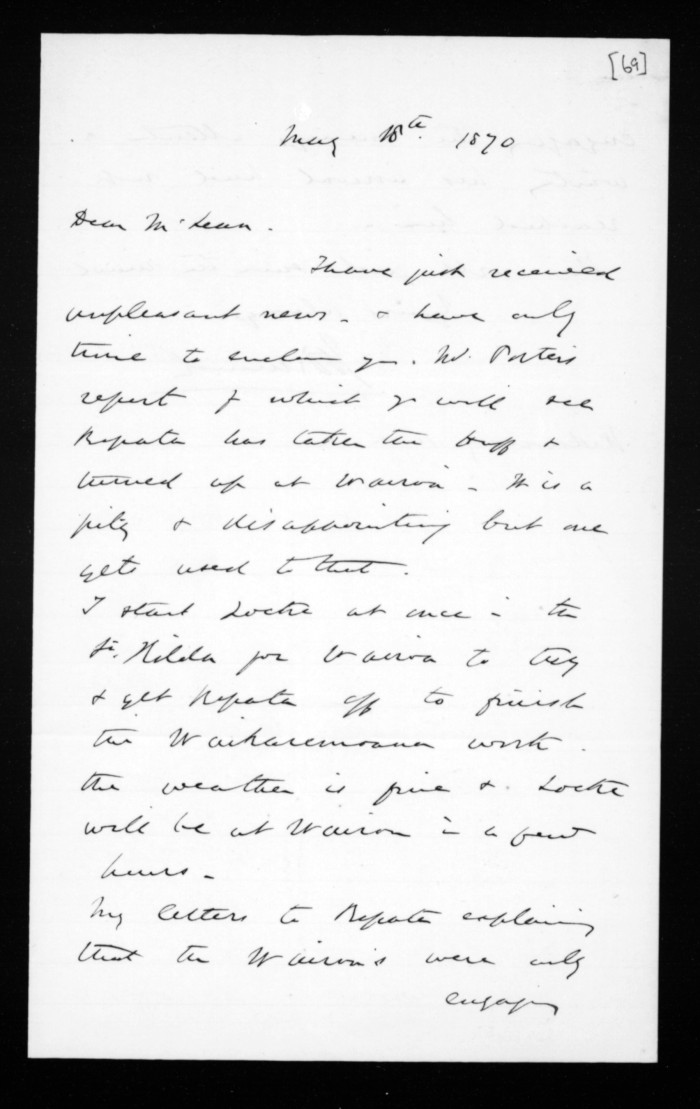 [69]
May 18th 1870
Dear McLean.
I have just received
unpleasant news - & have only
time to enclose you. Mr. Porter's
report of which you will see
Ropata has taken the huff &
turned up at Wairoa - It is a
pity & disappointing but one
gets used to that.
I start Locke at once in the
St. Kilda for Wairoa to try
& get Ropata off to finish
the Waikaremoana work.
the weather is fine & Locke
will be at Wairoa in a few
hours -
My letters to Ropata explaining
that the Wairoa's were only
engaging